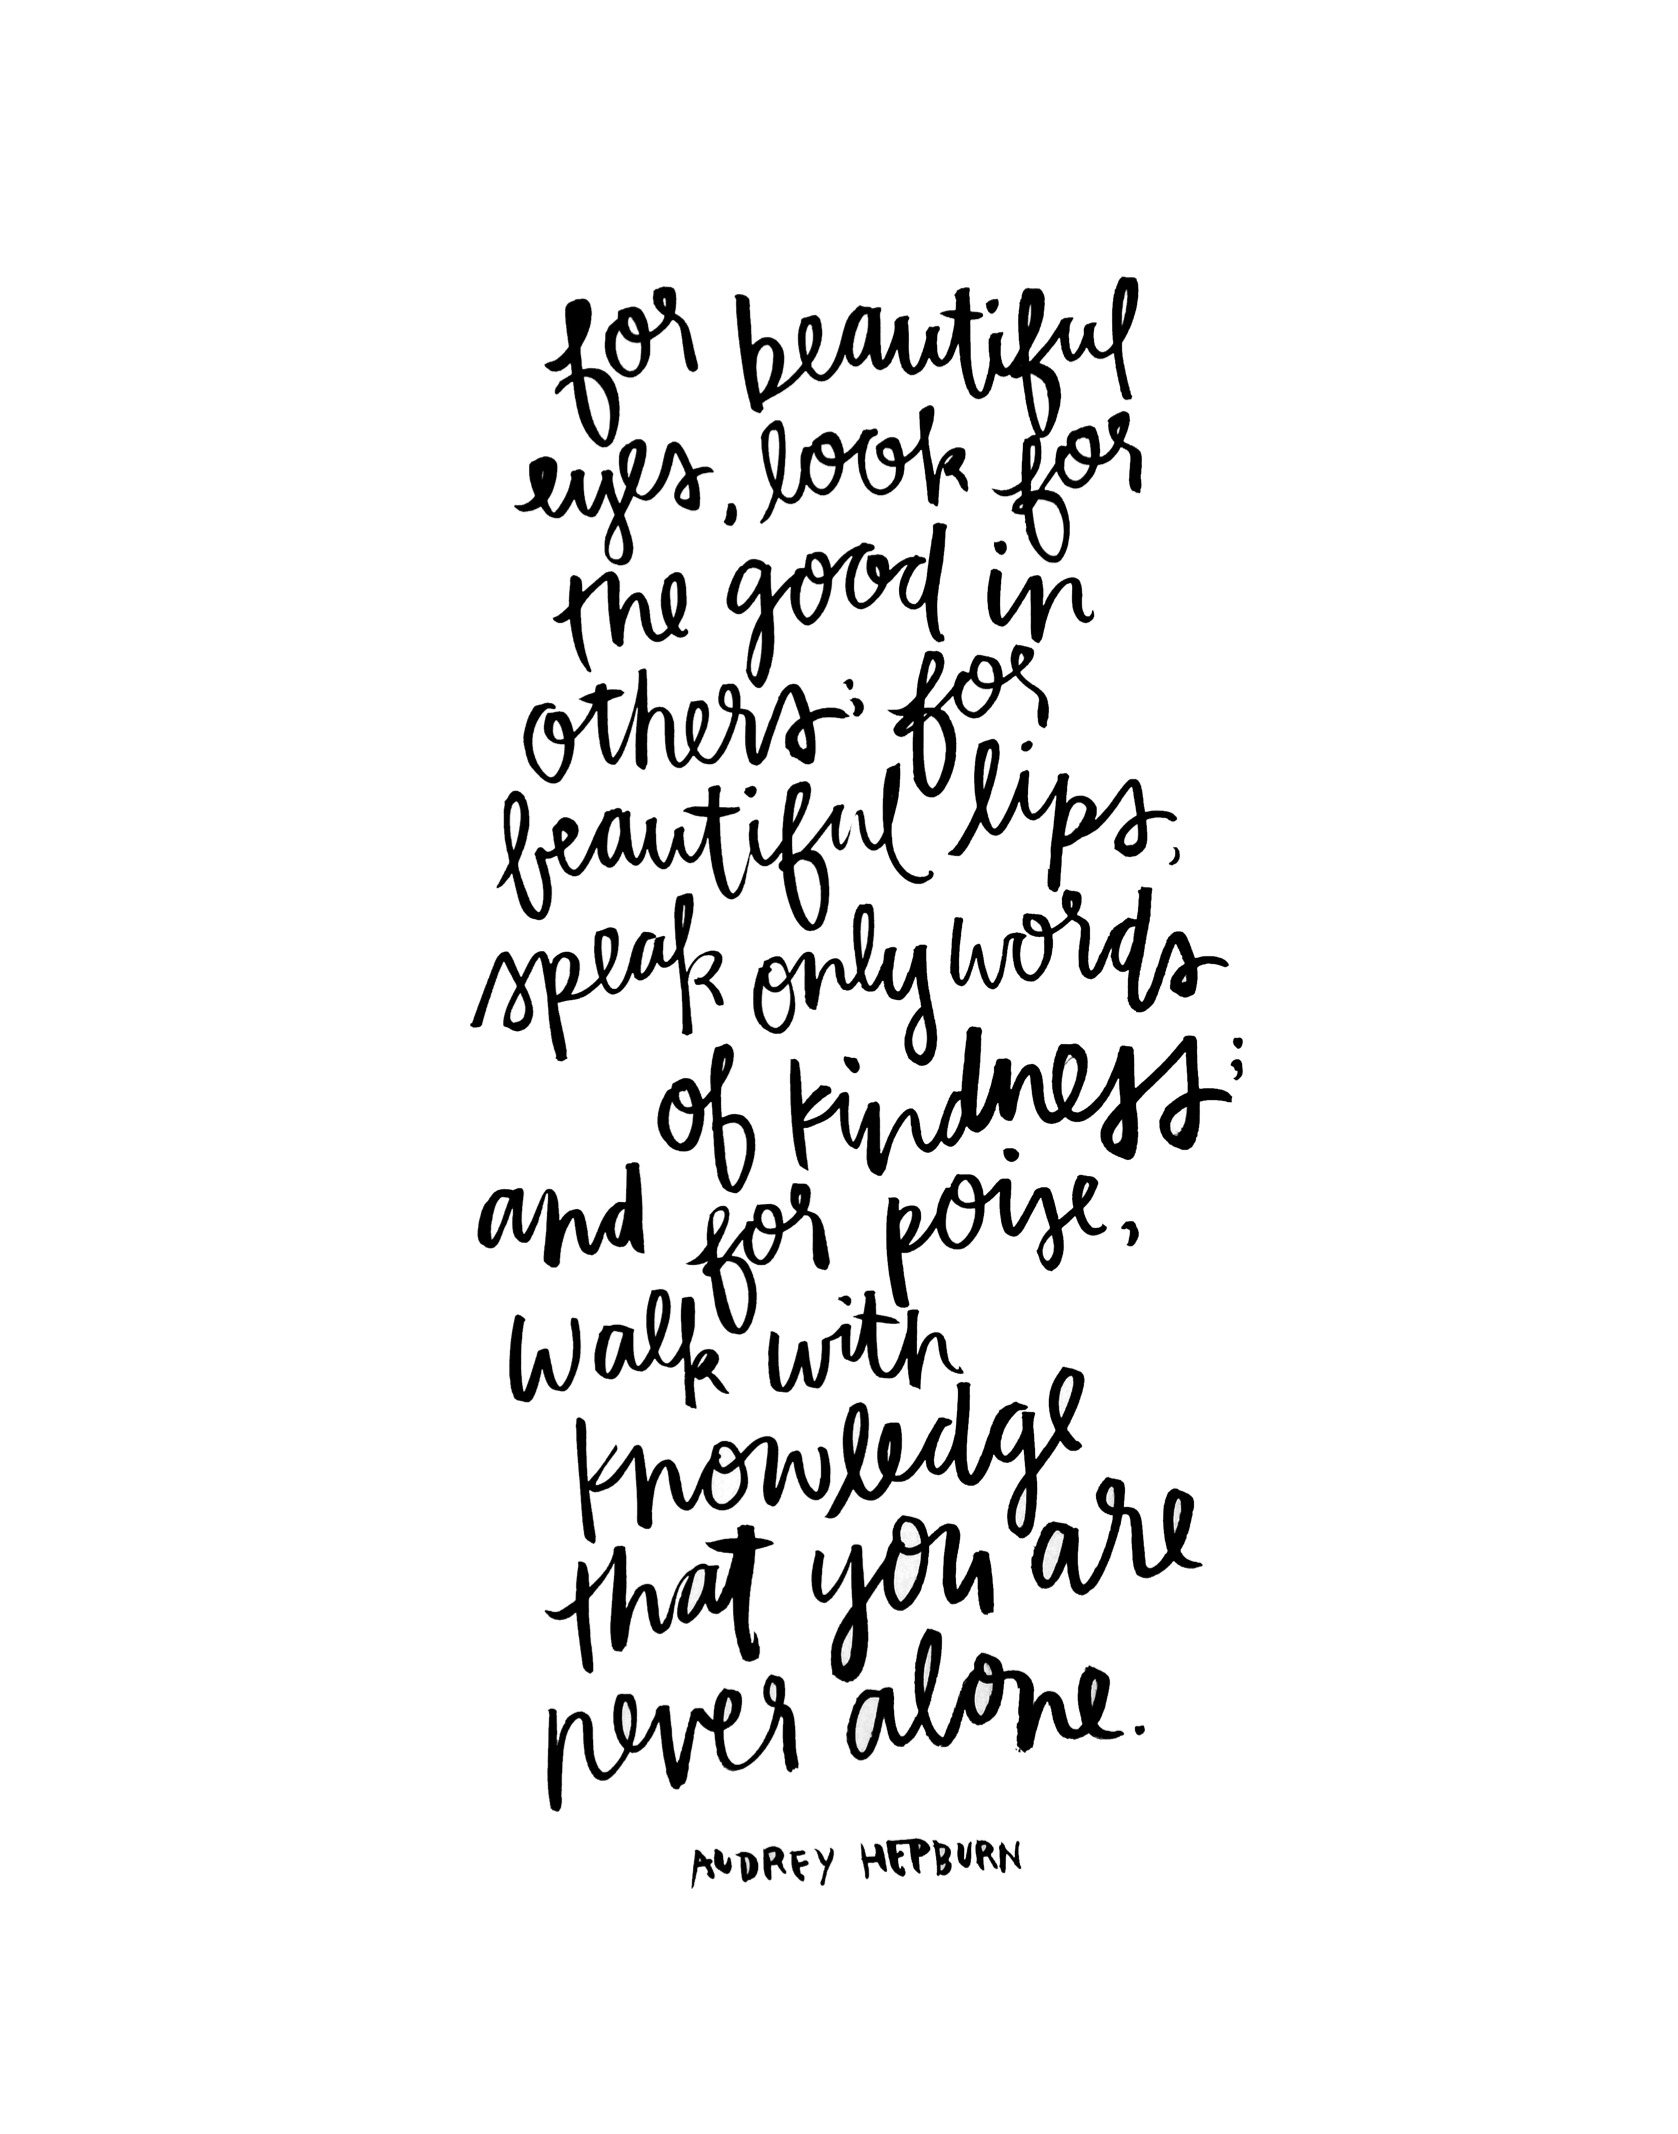 for beautiful
eyes, look for
the good in
others; for
beautiful lips,
speak only words
of kindness;
and for poise,
walk with
knowledge
that you are
never alone.
AUDREY HEPBURN